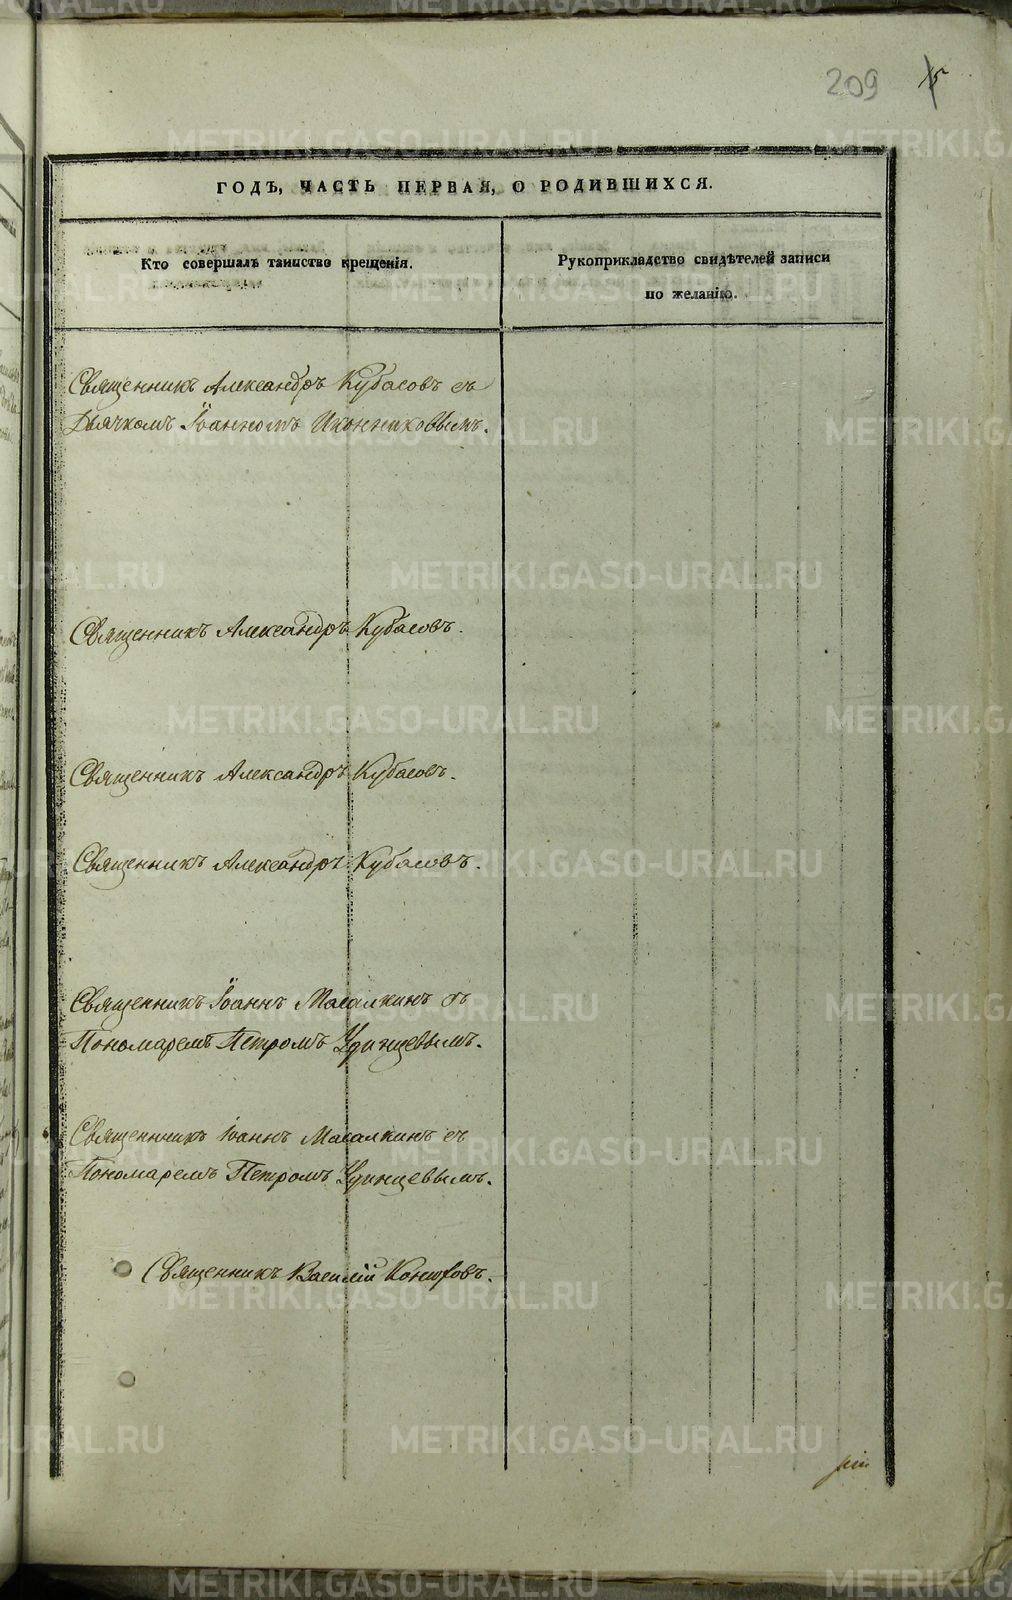 209
ГОДЪ, ЧАСТЬ ПЕРВАЯ, О РОДИВШИХСЯ.
Кто совершалъ таинство крещенія.
Рукоприкладство свидѣтелей записи
по желанію.
Священникъ Александръ Кубасовъ съ
Дьячкомъ Іоанномъ Иконниковымъ.
Священникъ Александръ Кубасовъ.
Священникъ Александръ Кубасовъ.
Священникъ Александръ Кубасовъ.
Священникъ Іоаннъ Масалкинъ съ
Пономаремъ Петромъ Удинцевымъ.
Священникъ Іоаннъ Масалкинъ съ
Пономаремъ Петромъ Удинцевымъ.
Священникъ Василій Конюховъ.
METRIKI.GASO-URAL.RU